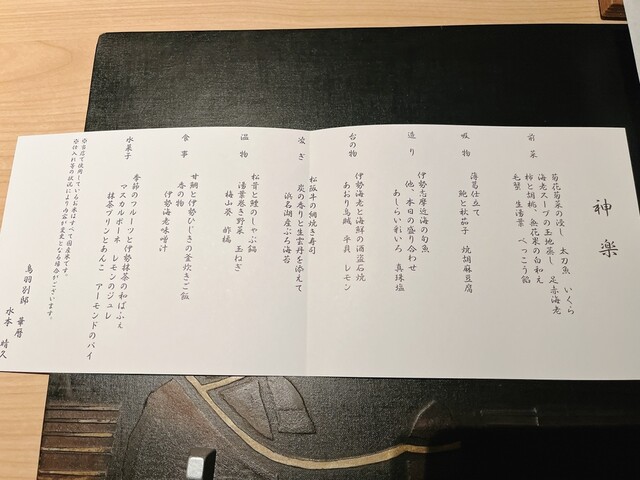 神楽
前菜
菊花菊菜の浸し 太刀魚 いくら
海老スープの玉地蒸し 足赤海老
柿と胡桃、無花果の白和え
毛蟹 生湯葉 べっこう餡
吸物
薄葛仕立て
鮑と秋茄子 焼胡麻豆腐
造り
伊勢志摩近海の旬魚
他、本日の盛り合わせ
あしらい彩いろ 真珠塩
台の物
伊勢海老と海鮮の酒盗石焼
あおり烏賊 平貝 レモン
次ぎ
松阪牛の網焼き寿司
炭の香りと生雲丹を添えて
浜名湖産ぶろ海苔
温物
松茸と鱧のしゃぶ鍋
湯葉巻き野菜 玉ねぎ
梅山葵 酢橘
食事
甘鯛と伊勢ひじきの釜炊きご飯
香の物 伊勢海老味噌汁
水菓子
季節のフルーツと伊勢抹茶の和ぱふぇ
マスカルポーネ レモンのジュレ
抹茶プリンとあんこ アーモンドのパイ
※当店で使用しているお米はすべて国産米です。
※仕入れ等の状況により内容が変更となる場合がございます。
鳥羽別邸 華暦
水本 靖久